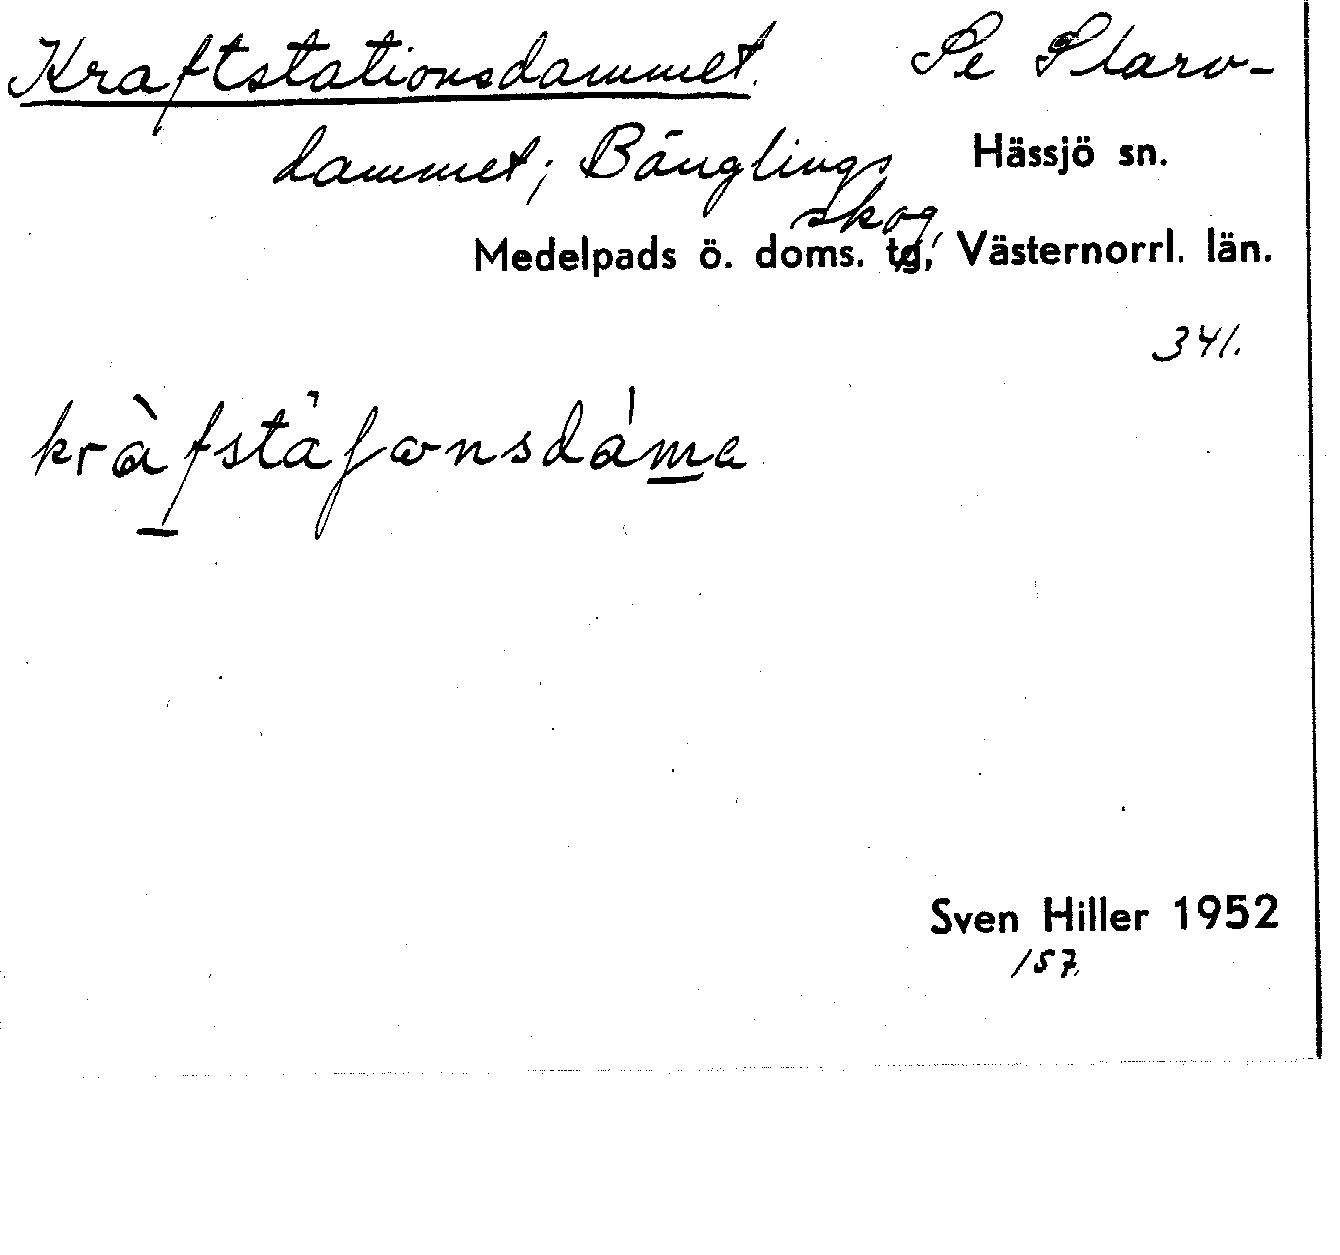 Kraftstationsdammet. Se Slarv-
dammet; Bänglings
skog,
Hässjö sn.
Medelpads ö. doms. tg, Västernorrl. län.
341.
kràfstàʃωnsdáma
Sven Hiller 1952
157.